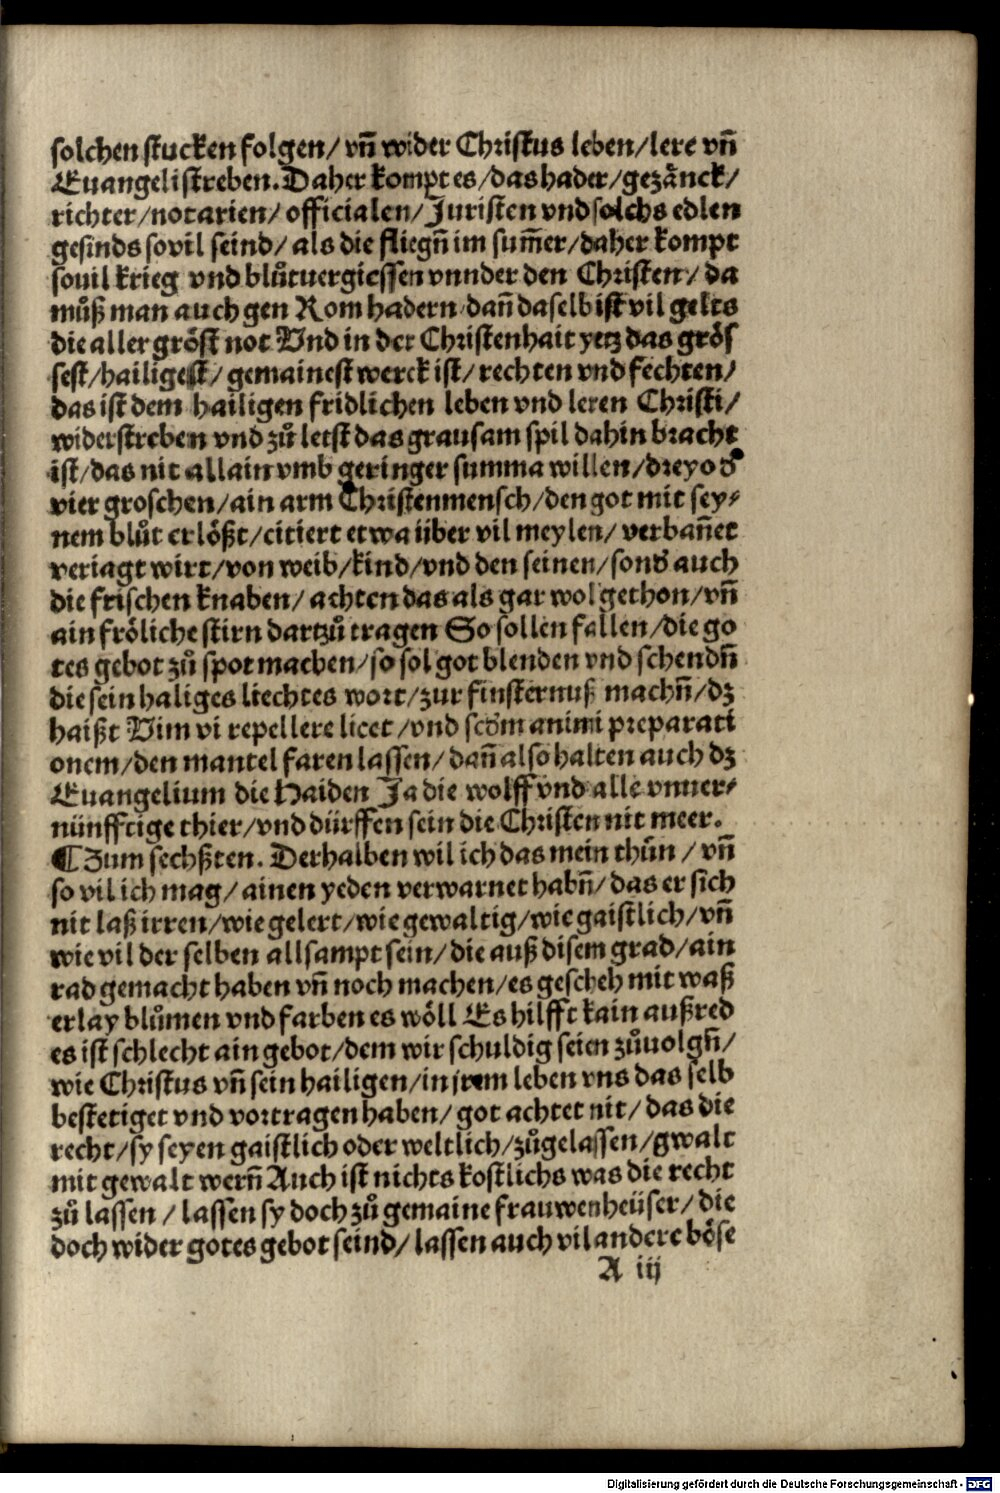 solchen stucken folgen/ vñ wider Christus leben/lere vñ
Euangeli streben. Daher kompt es/das hader/gezänck/
richter/notarien/ officialen/ Juristen vnd solchs edlen
gesinds souil seind/ als die fliegñ im sum̃er/daher kompt
souil krieg vnd blůtuergiessen vnnder den Christen/ da
můß man auch gen Rom hadern dañ daselb ist vil gelts
die aller gröst not Vnd in der Christenhait yetz das grös
sest/hailigest/ gemainest werck ist/ rechten vnd fechten/
das ist dem hailigen fridlichen leben vnd leren Christi/
widerstreben vnd zů letst das grausam spil dahin bracht
ist/das nit allain vmb geringer summa willen/dreyod̕
vier groschen/ain arm Christenmensch/den got mit sey⸗
nem blůt erlößt/citiert etwa über vil meylen/ verbañet
veriagt wirt/von weib/kind/vnd den seinen/sond̕ auch
die frischen knaben/ achten das als gar wol gethon/vñ
ain fröliche stirn dartzů tragen So sollen fallen/die go
tes gebot zů spot machen/so sol got blenden vnd schendñ
die sein haliges liechtes wort/zur finsternuß machñ/dz
haißt Vim vi repellere licet/vnd scd̕m animi preparati
onem/den mantel faren lassen/ dañ also halten auch dz
Euangelium die Haiden Ja die wolff vnd alle vnuer⸗
nünfftige thier/vnd dürffen sein die Christen nit meer.
¶ Zum sechßten. Derhalben wil ich das mein thůn/ vñ
so vil ich mag/ ainen yeden verwarnet habñ/das er sich
nit laß irren/wie gelert/wie gewaltig/wie gaistlich/vñ
wie vil der selben allsampt sein/die auß disem grad/ain
rad gemacht haben vñ noch machen/es gescheh mit waß
erlay blůmen vnd farben es wöll Es hilfft kain außred
es ist schlecht ain gebot/dem wir schuldig seien zůuolgñ/
wie Christus vñ sein hailigen/in jrem leben vns das selb
bestetiget vnd vortragen haben/ got achtet nit/ das die
recht/sy seyen gaistlich oder weltlich/zůgelassen/gwalt
mit gewalt werñ Auch ist nichts kostlichs was die recht
zů lassen / lassen sy doch zů gemaine frauwenheüser/ die
doch wider gotes gebot seind/ lassen auch vil andere böse
A iij
Digitalisierung gefördert durch die Deutsche Forschungsgemeinschaft - DFG